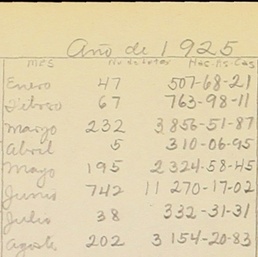 Año de 1925
MES No de lotes Has-As-Cas
Enero 47 507-68-21
Febrero 67 763-98-11
Marzo 232 3856-51-87
Abril 5 310-06-95
Mayo 195 2324-58-45
Junio 742 11 270-17-02
Julio 38 332-31-31
Agosto 202 3 154-20-83